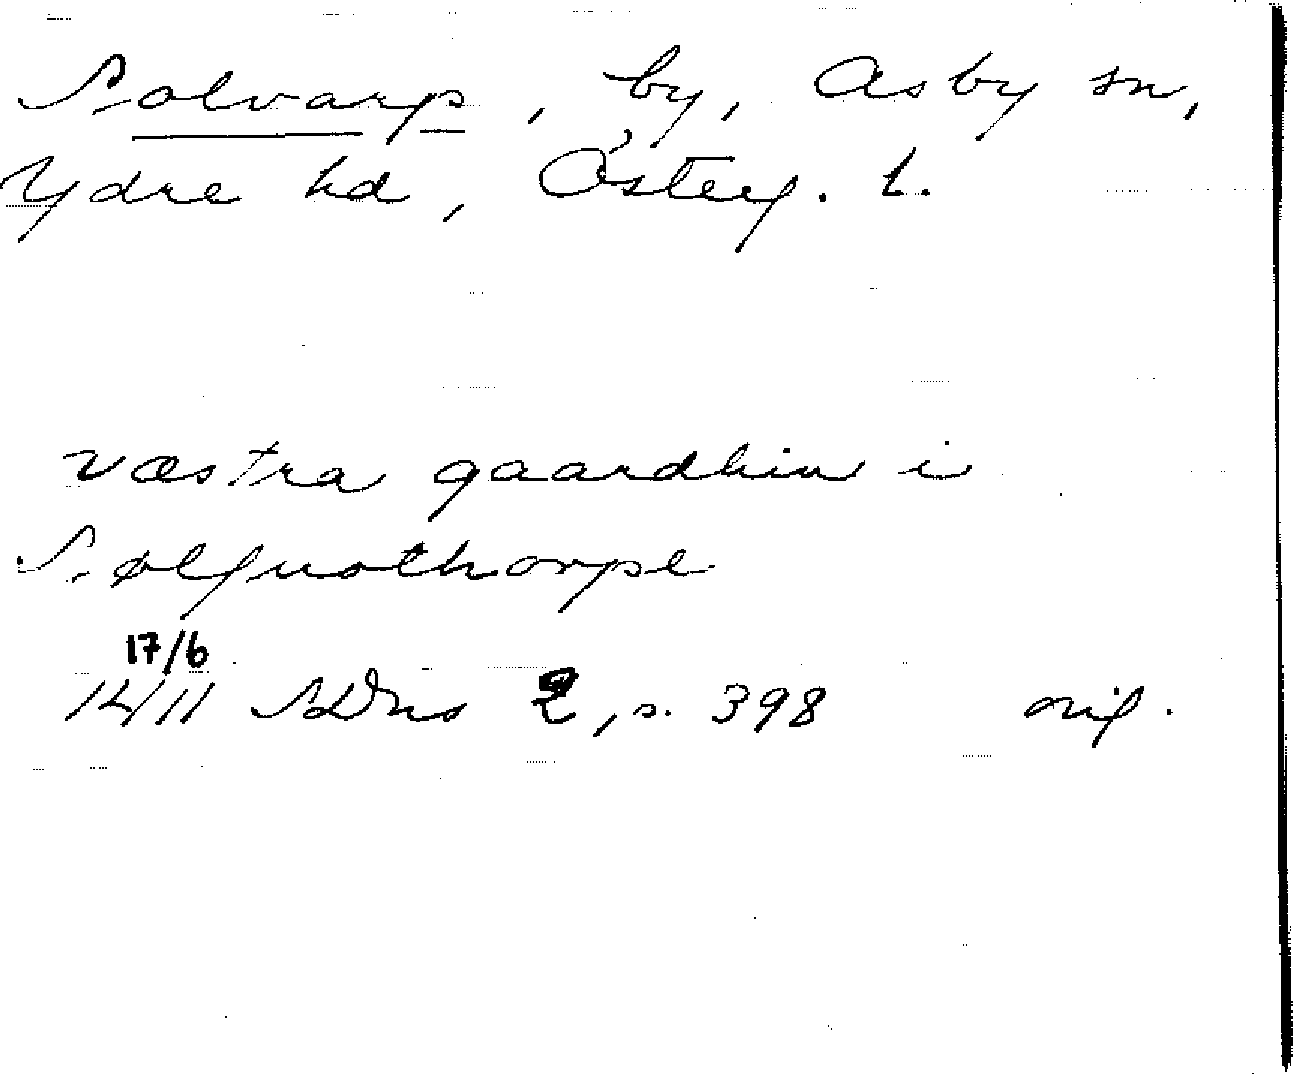 Solvarp, by, Asby sn,
Ydre hd, Österg. l.
væstra gaardhin i
Sølfnothorpe
17/6
1411 SDns 2, s. 398 orig.